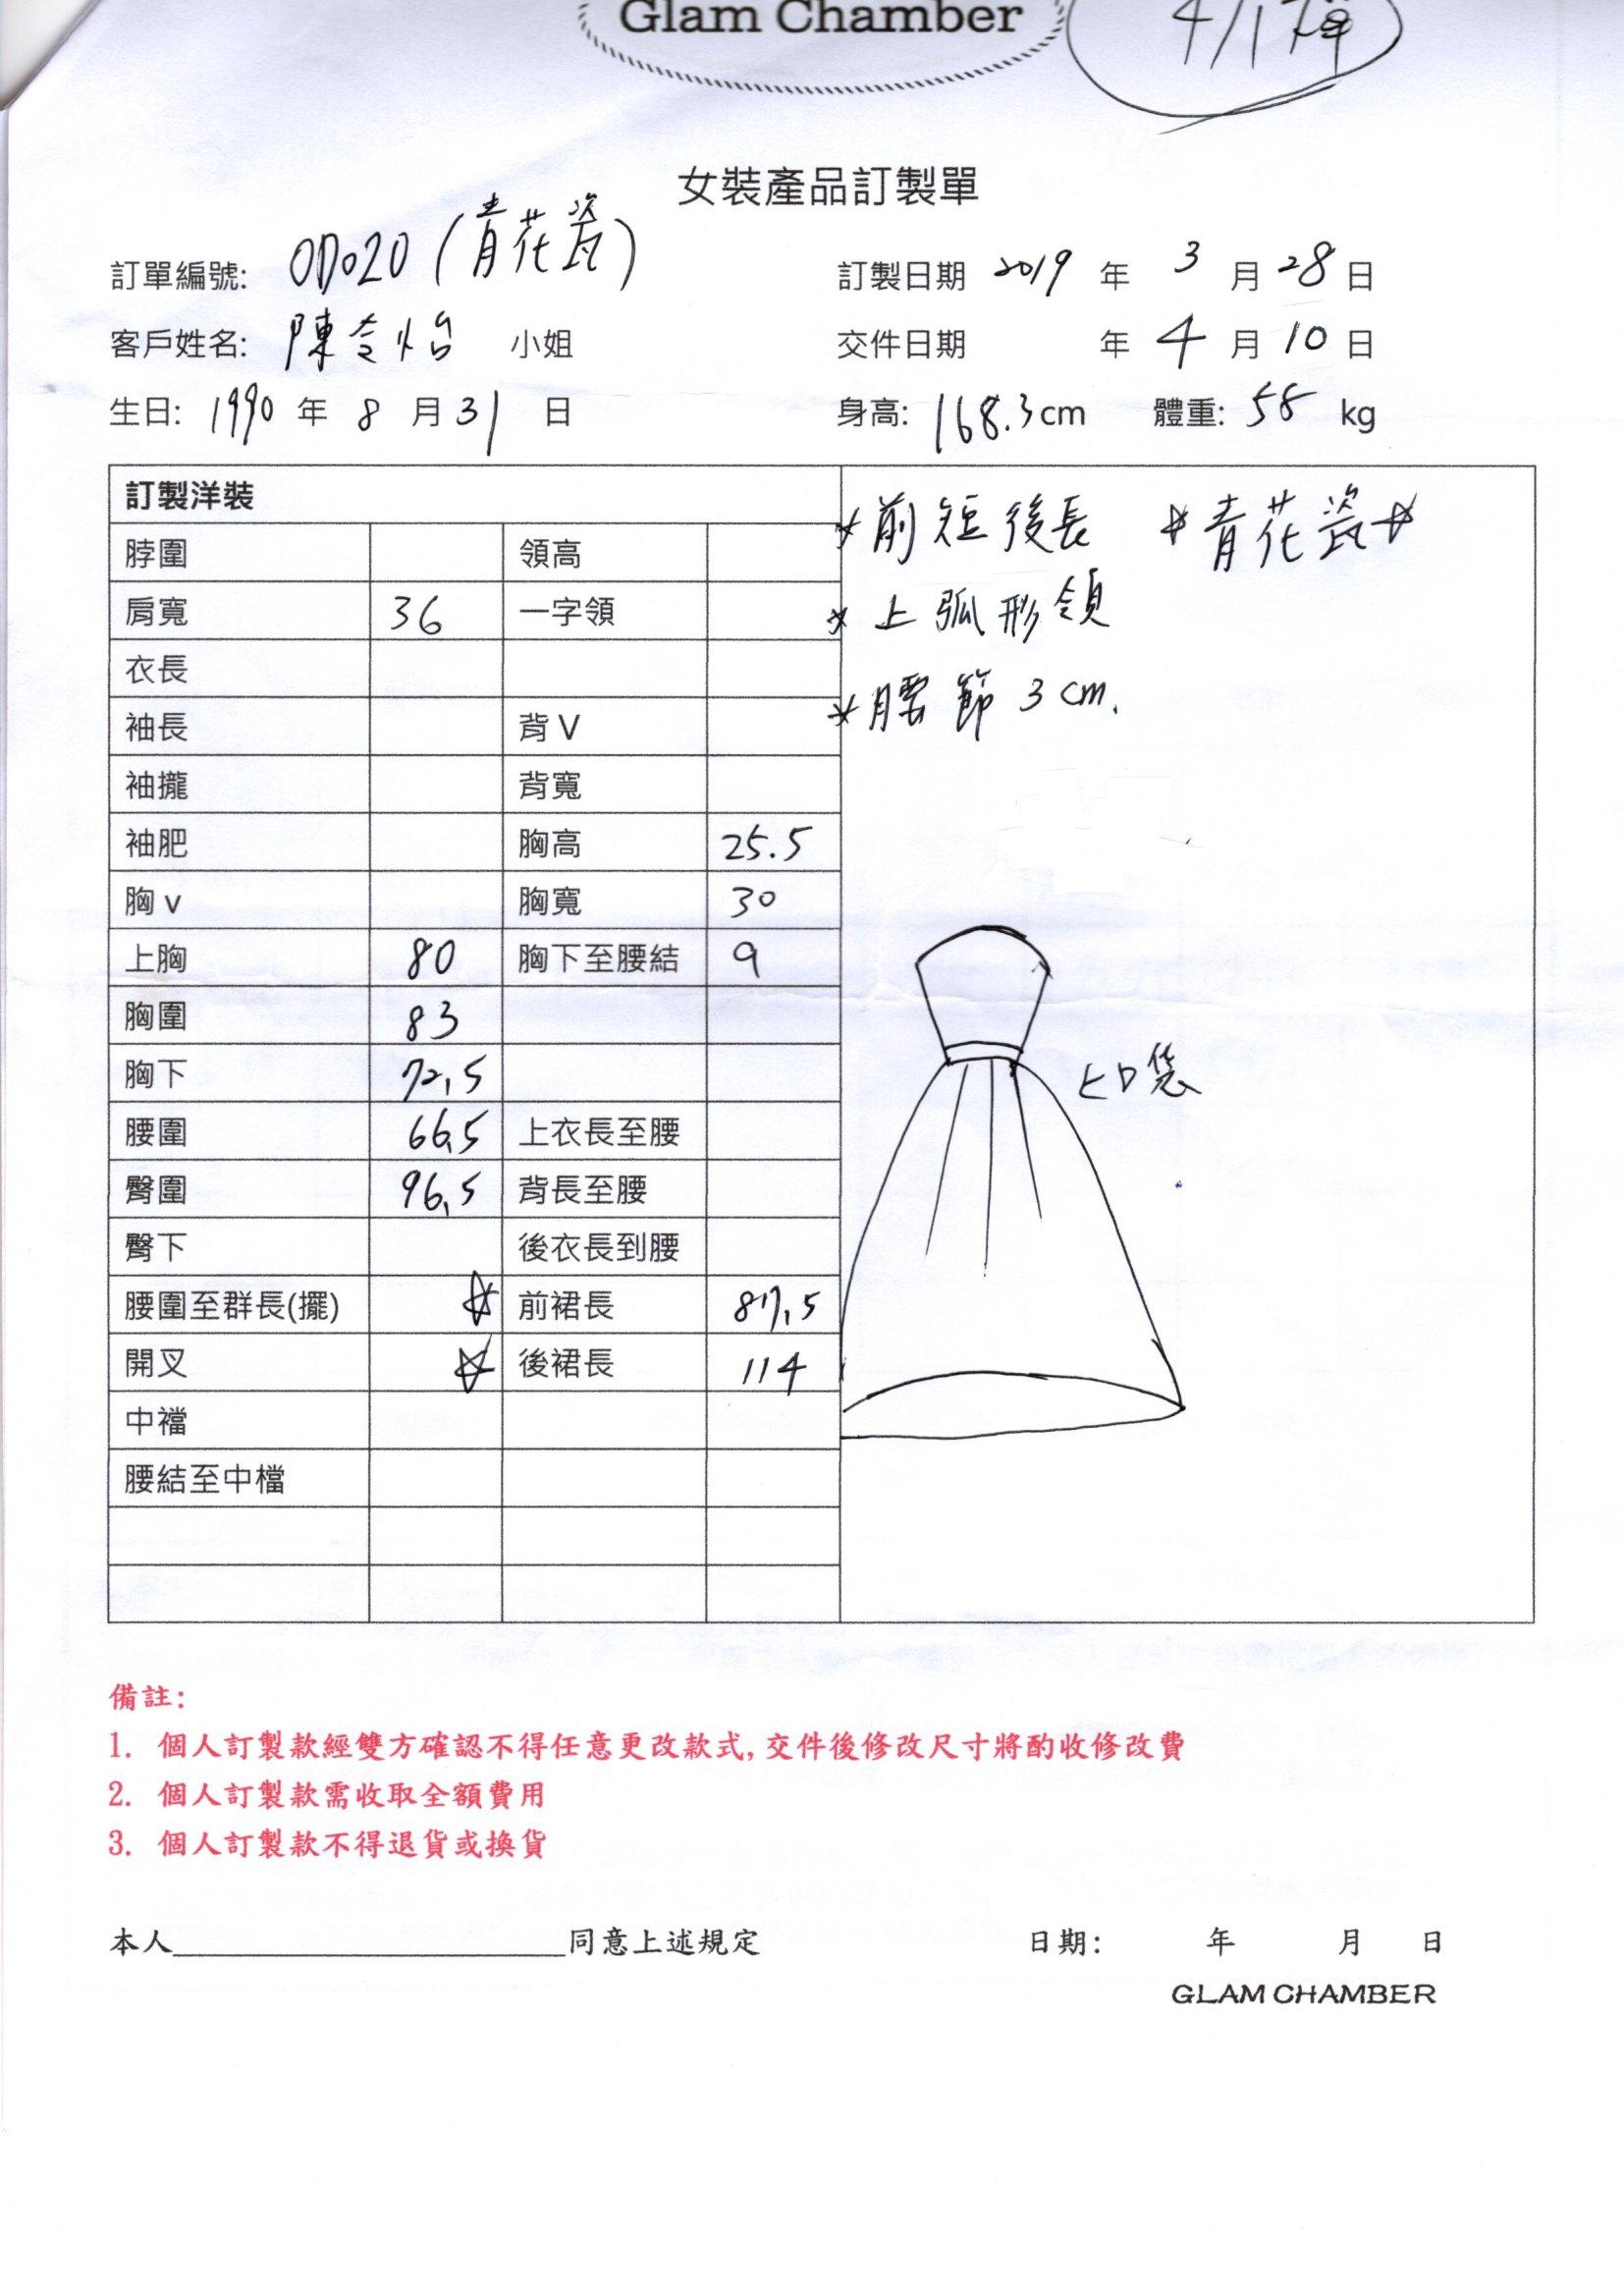 Glam Chamber
4/1
女裝產品訂製單
訂單編號: OD020 (青花瓷)
訂製日期 2019 年 3 月 28 日
客戶姓名: 陳令怡 小姐
交件日期 年 4 月 10 日
生日: 1990 年 8 月 31 日
身高: 168.3 cm 體重: 58 kg
訂製洋裝
脖圍 領高
肩寬 36 一字領
衣長
袖長 背 V
袖攏 背寬
袖肥 胸高 25.5
胸 v 胸寬 30
上胸 80 胸下至腰結 9
胸圍 83
胸下 72.5
腰圍 66.5 上衣長至腰
臀圍 96.5 背長至腰
臀下 後衣長到腰
腰圍至群長(擺) ☆ 前裙長 87.5
開叉 ☆ 後裙長 114
中襠
腰結至中檔
☆ 前短後長 ☆ 青花瓷 ☆
☆ 上弧形領
☆ 腰節 3 cm.
口袋
備註:
1. 個人訂製款經雙方確認不得任意更改款式, 交件後修改尺寸將酌收修改費
2. 個人訂製款需收取全額費用
3. 個人訂製款不得退貨或換貨
本人 同意上述規定 日期: 年 月 日
GLAM CHAMBER